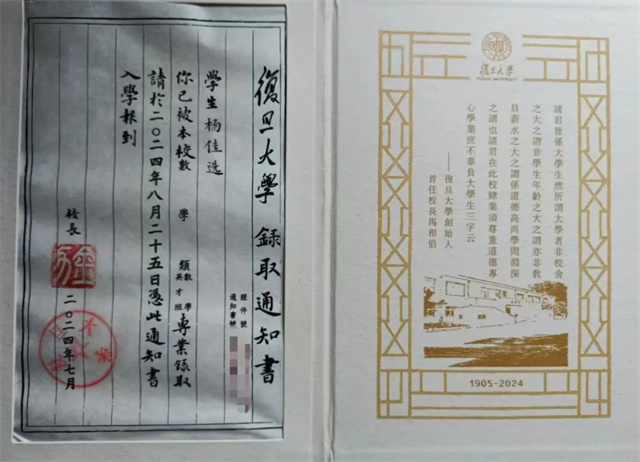 復旦大學 錄取通知書
證件號
通知書號
學生 杨佳选
你已被本校數學類數學英才班專業錄取
請於二〇二四年八月二十五日憑此通知書
入學報到
校長
二〇二四年七月
復旦大學
諸君皆係大學生然所謂大學者非校舍
之大之謂非學生年齡之大之謂亦非教
員薪水之大之謂係道德高尚學問淵深
之謂也諸君在此校肄業須尊重道德專
心學業庶不辜負大學生三字云
——復旦大學創始人
首任校長馬相伯
1905-2024